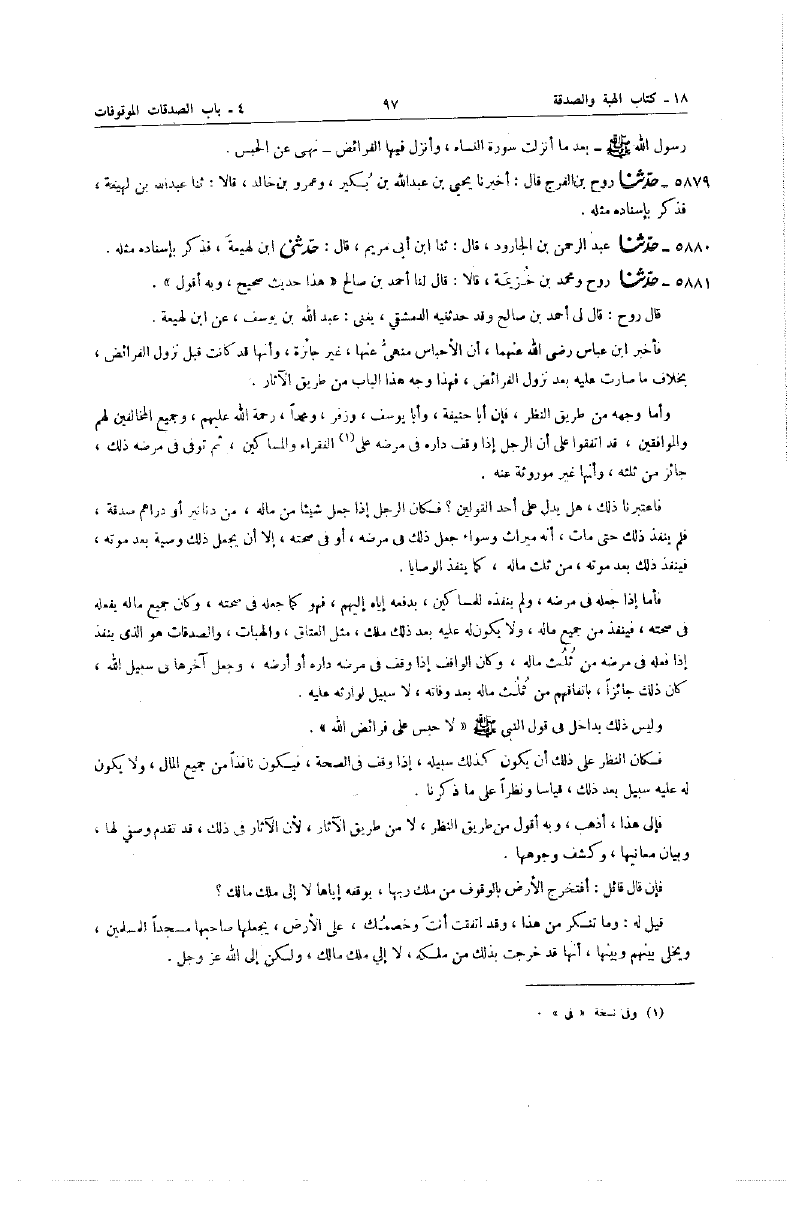 ١٨ - كتاب الهبة والصدقة ٩٧ ٤ - باب الصدقات الموقوفات
رسول الله ﷺ - بعد ما أنزلت سورة النساء ، وأنزل فيها الفرائض - نهى عن الحبس .
٥٨٧٩ - حدثنا روح بن الفرج قال : أخبرنا يحيى بن عبدالله بن بُكير ، وعمرو بن خالد ، قالا : ثنا عبدالله بن لهيعة ،
فذكر بإسناده مثله .
٥٨٨٠ - حدثنا عبد الرحمن بن الجارود ، قال : ثنا ابن أبى مريم ، قال : حدثنى ابن لهيعةَ ، فذكر بإسناده مثله .
٥٨٨١ - حدثنا روح ومحمد بن خُزيمَة ، قالا : قال لنا أحمد بن صالح « هذا حديث صحيح ، وبه أقول » .
قال روح : قال لى أحمد بن صالح وقد حدثنيه الدمشقي ، يعنى : عبد الله بن يوسف ، عن ابن لهيعة .
فأخبر ابن عباس رضى الله عنهما ، أن الأحباس منهىٌّ عنها ، غير جائزة ، وأنها قد كانت قبل نزول الفرائض ،
بخلاف ما صارت عليه بعد نزول الفرائض ، فهذا وجه هذا الباب من طريق الآثار .
وأما وجهه من طريق النظر ، فإن أبا حنيفة ، وأبا يوسف ، وزفر ، ومحمداً ، رحمة الله عليهم ، وجميع المخالفين لهم
والموافقين ، قد اتفقوا على أن الرجل إذا وقف داره فى مرضه على(١) الفقراء والمساكين ، ثم توفى فى مرضه ذلك ،
جائز من ثلثه ، وأنها غير موروثة عنه .
فاعتبرنا ذلك ، هل يدل على أحد القولين ؟ فكان الرجل إذا جعل شيئا من ماله ، من دنانير أو دراهم صدقة ،
فلم ينفذ ذلك حتى مات ، أنه ميراث وسواء جعل ذلك فى مرضه ، أو فى صحته ، إلا أن يجعل ذلك وصية بعد موته ،
فينفذ ذلك بعد موته ، من ثلث ماله ، كما ينفذ الوصايا .
فأما إذا جعله فى مرضه ، ولم ينفذه للمساكين ، بدفعه إياه إليهم ، فهو كما جعله فى صحته ، وكان جميع ماله يفعله
فى صحته ، فينفذ من جميع ماله ، ولا يكون له عليه بعد ذلك ملك ، مثل العتاق ، والهبات ، والصدقات هو الذى ينفذ
إذا فعله فى مرضه من ثُلُث ماله ، وكان الواقف إذا وقف فى مرضه داره أو أرضه ، وجعل آخرها فى سبيل الله ،
كان ذلك جائزاً ، باتفاقهم من ثُلُث ماله بعد وفاته ، لا سبيل لوارثه عليه .
وليس ذلك بداخل فى قول النبي ﷺ « لا حبس على فرائض الله » .
فكان النظر على ذلك أن يكون كذلك سبيله ، إذا وقف فى الصحة ، فيكون نافذاً من جميع المال ، ولا يكون
له عليه سبيل بعد ذلك ، قياسا ونظراً على ما ذكرنا .
فإلى هذا ، أذهب ، وبه أقول من طريق النظر ، لا من طريق الآثار ، لأن الآثار فى ذلك ، قد تقدم وصفي لها ،
وبيان معانيها ، وكشف وجوهها .
فإن قال قائل : أفتخرج الأرض بالوقوف من ملك ربها ، بوقفه إياها لا إلى ملك مالك ؟
قيل له : وما تنكر من هذا ، وقد اتفقت أنتَ وخصمُك ، على الأرض ، يجعلها صاحبها مسجداً للمسلمين ،
ويخلى بينهم وبينها ، أنها قد خرجت بذلك من ملكه ، لا إلي ملك مالك ، ولكن إلى الله عز وجل .
(١) وفى نسخة « فى » .